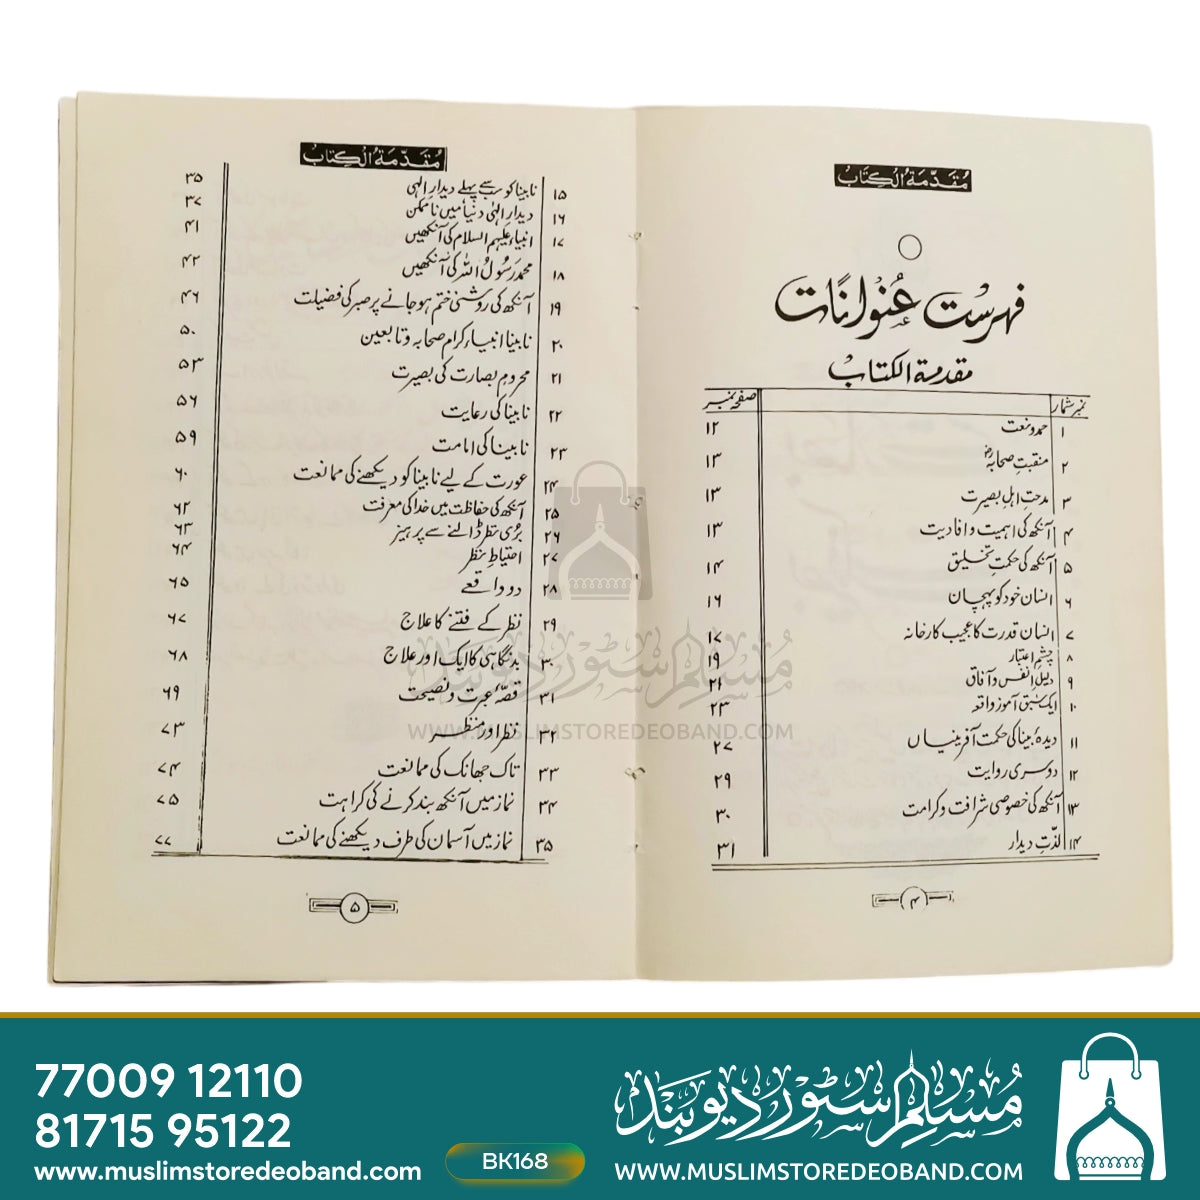 مُقَدِّمَةُ الْكِتَابْ
فہرست عُنوانات
مقدمۃ الکتاب
نمبر شمار صفحہ نمبر
۱ حمد و نعت ۱۲
۲ منقبتِ صحابہؓ ۱۳
۳ مدحتِ اہلِ بصیرت ۱۳
۴ آنکھ کی اہمیت و افادیت ۱۳
۵ آنکھ کی حکمتِ تخلیق ۱۴
۶ انسان خود کو پہچان ۱۶
۷ انسان قدرت کا عجیب کارخانہ ۱۷
۸ چشمِ اعتبار ۱۹
۹ دلیلِ انفس و آفاق ۲۱
۱۰ ایک سبق آموز واقعہ ۲۳
۱۱ دیدۂ بینا کی حکمت آفرینیاں ۲۷
۱۲ دوسری روایت ۲۹
۱۳ آنکھ کی خصوصی شرافت و کرامت ۳۰
۱۴ لذّتِ دیدار ۳۱
۴
مُقَدِّمَةُ الْكِتَابْ
۱۵ نابینا کو سب سے پہلے دیدارِ الٰہی ۳۵
۱۶ دیدارِ الٰہی دنیا میں ناممکن ۳۷
۱۷ انبیاء علیہم السلام کی آنکھیں ۴۱
۱۸ محمد رَسُولُ اللہ کی آنکھیں ۴۲
۱۹ آنکھ کی روشنی ختم ہو جانے پر صبر کی فضیلت ۴۶
۲۰ نابینا انبیاء کرام صحابہ و تابعین ۵۰
۲۱ محرومِ بصارت کی بصیرت ۵۳
۲۲ نابینا کی رعایت ۵۶
۲۳ نابینا کی امامت ۵۹
۲۴ عورت کے لیے نابینا کو دیکھنے کی ممانعت ۶۰
۲۵ آنکھ کی حفاظت میں خدا کی معرفت ۶۲
۲۶ بُری نظر ڈالنے سے پرہیز ۶۳
۲۷ احتیاطِ نظر ۶۴
۲۸ دو واقعے ۶۵
۲۹ نظر کے فتنے کا علاج ۶۷
۳۰ بدنگاہی کا ایک اور علاج ۶۸
۳۱ قصّۂ عبرت و نصیحت ۶۹
۳۲ نظر اور منظر ۷۳
۳۳ تاک جھانک کی ممانعت ۷۴
۳۴ نماز میں آنکھ بند کرنے کی کراہت ۷۵
۳۵ نماز میں آسمان کی طرف دیکھنے کی ممانعت ۷۷
۵
مُسلم سٹور دیوبند
WWW.MUSLIMSTOREDEOBAND.COM
77009 12110
81715 95122
www.muslimstoredeoband.com
BK168
مُسلم سٹور دیوبند
WWW.MUSLIMSTOREDEOBAND.COM